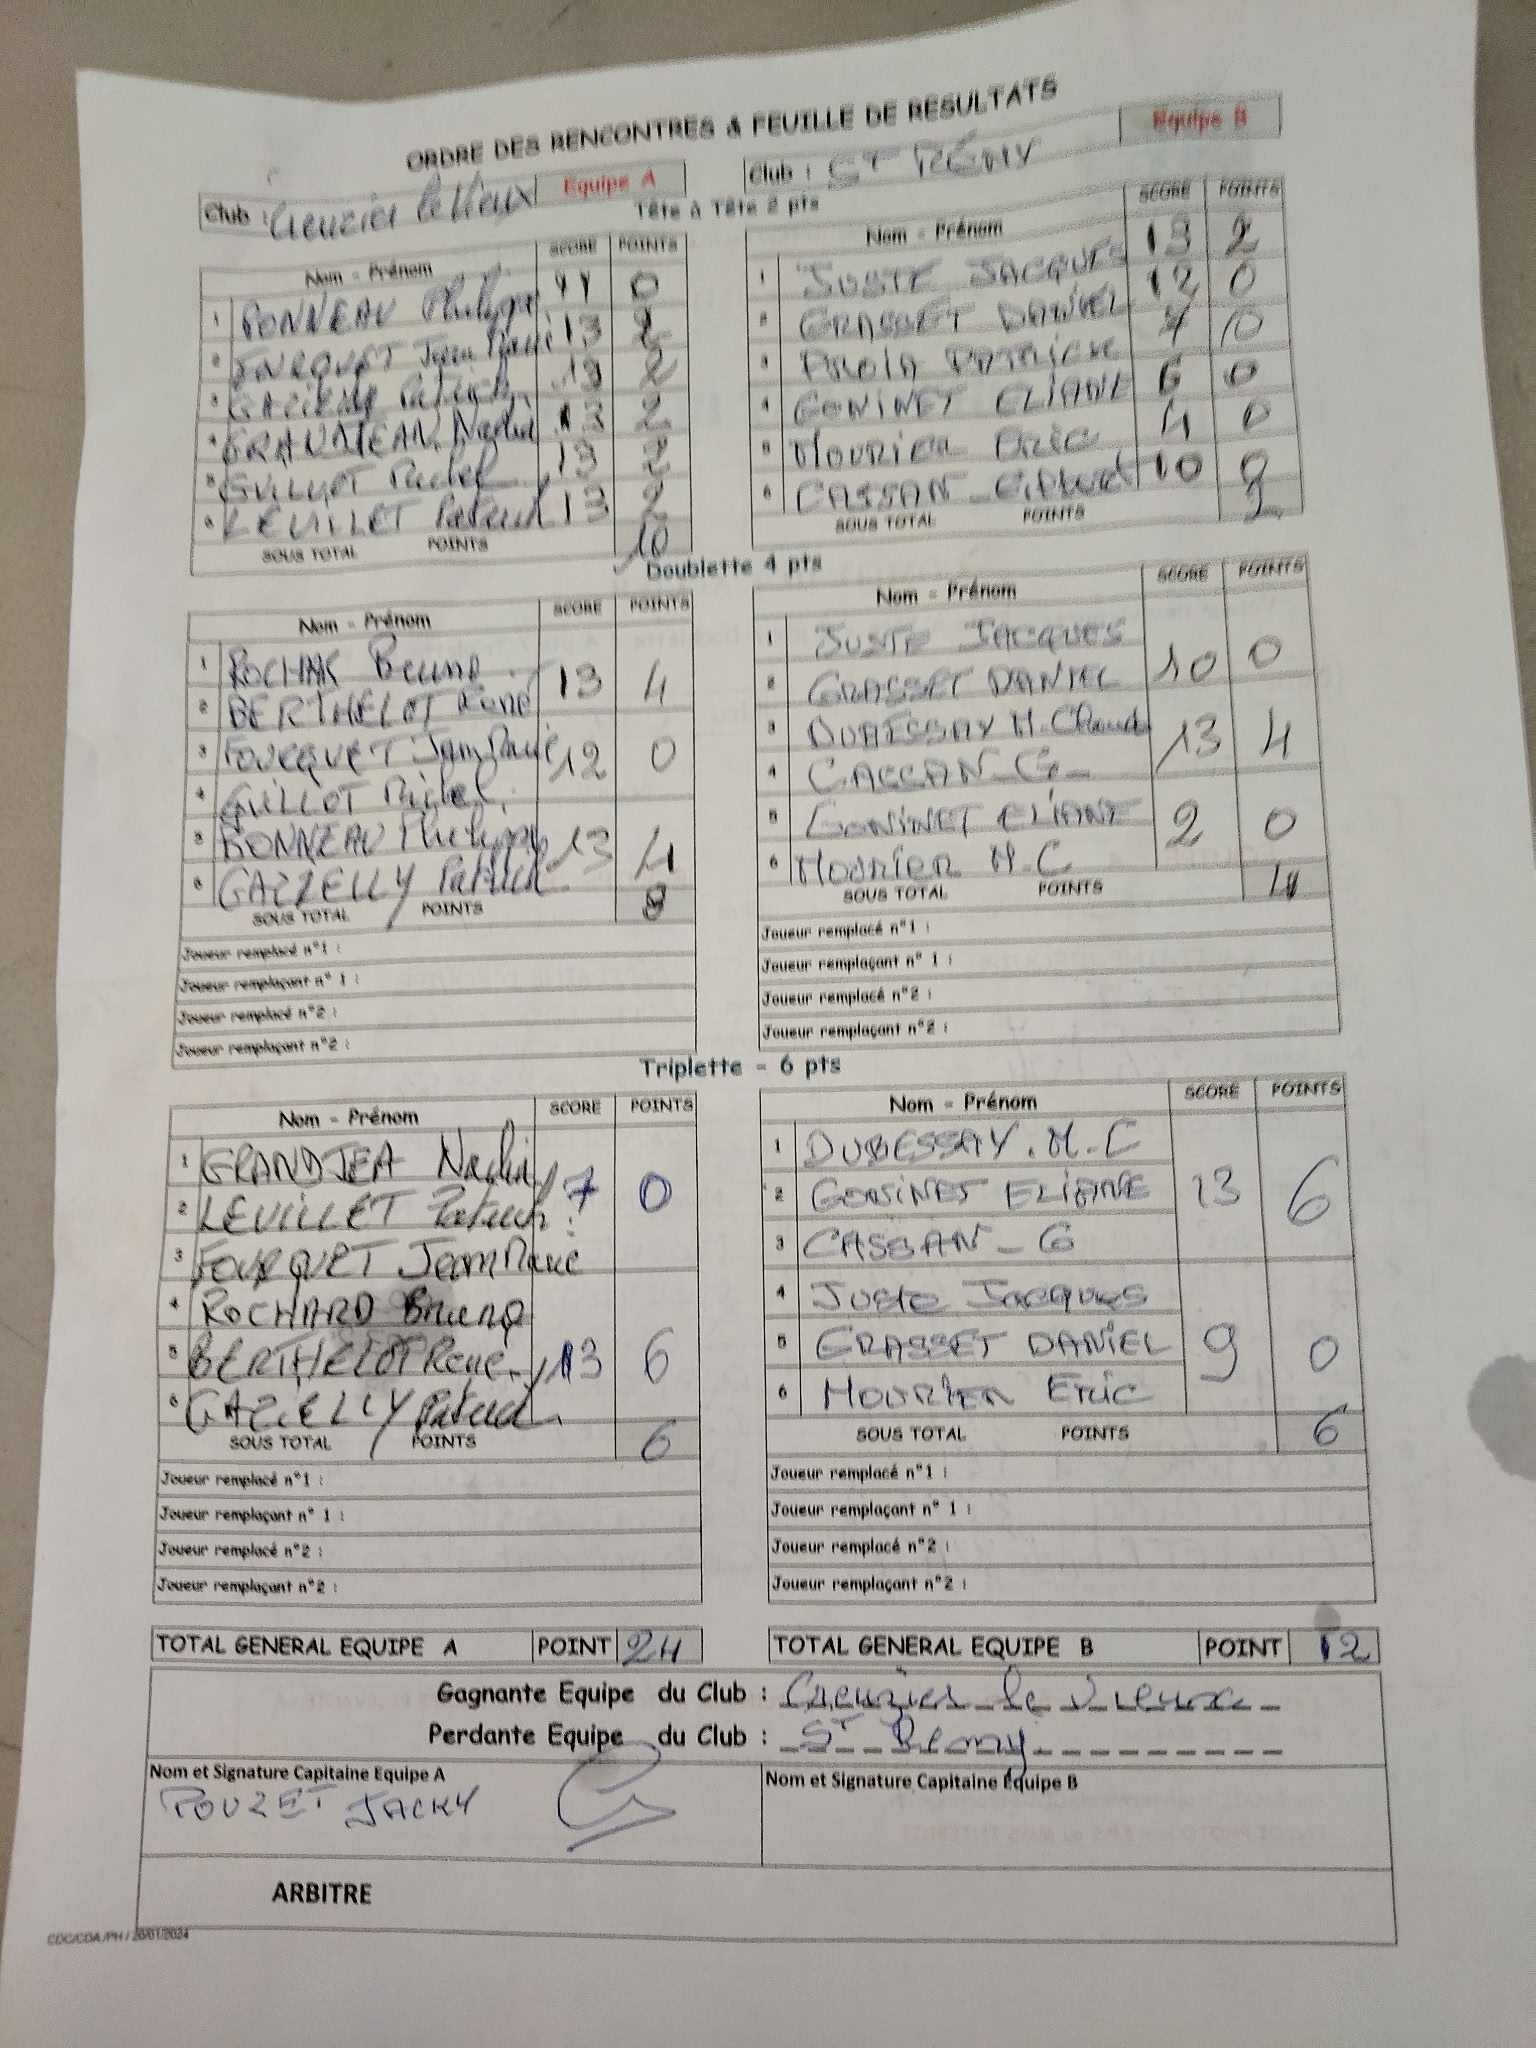 ORDRE DES RENCONTRES & FEUILLE DE RESULTATS
Club : Creuzier le Vieux Equipe A
Club : ST RÉMY Equipe B
Tête à Tête 2 pts
Nom - Prénom SCORE POINTS
1 BONNEAU Philippe 11 0
2 FOURQUET Jean Marie 13 2
3 Patrick 13 2
4 GRANDJEAN Nadia 13 2
5 GUILLOT Michel 13 2
6 LEUILLET Patrick 13 2
SOUS TOTAL POINTS 10
Nom - Prénom SCORE POINTS
1 JUSTE JACQUES 13 2
2 GRASSET DANIEL 12 0
3 PATRICK 7 0
4 GONINET ELIANE 6 0
5 MOURIER ERIC 4 0
6 CASSAN 10 0
SOUS TOTAL POINTS 2
Doublette 4 pts
Nom - Prénom SCORE POINTS
1 Bruno
2 BERTHELOT René 13 4
3 FOURQUET Jean Marie 12 0
4 GUILLOT Michel
5 BONNEAU Philippe 13 4
6 GAZIELLY Patrick
SOUS TOTAL POINTS 8
Joueur remplacé n°1 :
Joueur remplaçant n° 1 :
Joueur remplacé n°2 :
Joueur remplaçant n°2 :
Nom - Prénom SCORE POINTS
1 JUSTE JACQUES
2 GRASSET DANIEL 10 0
3 DUBESSAY M.Claude 13 4
4 CASSAN - G -
5 GONINET ELIANE 2 0
6 MOURIER M.C
SOUS TOTAL POINTS 4
Joueur remplacé n°1 :
Joueur remplaçant n° 1 :
Joueur remplacé n°2 :
Joueur remplaçant n°2 :
Triplette - 6 pts
Nom - Prénom SCORE POINTS
1 GRANDJEA Nadia
2 LEUILLET Patrick 7 0
3 FOURQUET Jean Marie
4 ROCHARD Bruno
5 BERTHELOT René 13 6
6 GAZIELLY Patrick
SOUS TOTAL POINTS 6
Joueur remplacé n°1 :
Joueur remplaçant n° 1 :
Joueur remplacé n°2 :
Joueur remplaçant n°2 :
Nom - Prénom SCORE POINTS
1 DUBESSAY . M.C
2 GONINET ELIANE 13 6
3 CASSAN - G
4 Juste Jacques
5 GRASSET DANIEL 9 0
6 MOURIER Eric
SOUS TOTAL POINTS 6
Joueur remplacé n°1 :
Joueur remplaçant n° 1 :
Joueur remplacé n°2 :
Joueur remplaçant n°2 :
TOTAL GENERAL EQUIPE A POINT 24
TOTAL GENERAL EQUIPE B POINT 12
Gagnante Equipe du Club : Creuzier le Vieux
Perdante Equipe du Club : ST Remy
Nom et Signature Capitaine Equipe A
POUZET JACKY
Nom et Signature Capitaine Equipe B
ARBITRE
CDC/CDA /PH / 20/01/2024